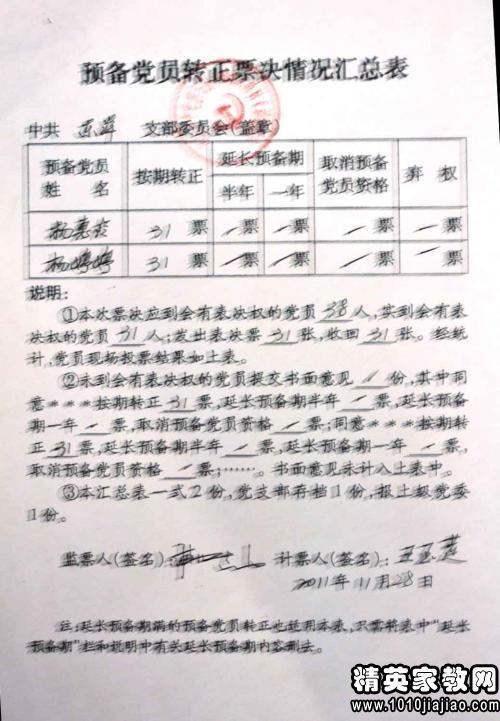 预备党员转正票决情况汇总表
中共 支部委员会(盖章)
预备党员 姓 名 按期转正 延长预备期 半年 一年 取消预备 党员资格 弃 权
31 票 / 票 / 票 / 票 / 票
杨婷婷 31 票 / 票 / 票 / 票 / 票
说明:
①本次票决应到会有表决权的党员 38 人,实到会有表
决权的党员 31 人;发出表决票 31 张,收回 31 张。经统
计,党员现场投票结果如上表。
②未到会有表决权的党员提交书面意见 / 份,其中同
意***按期转正 31 票,延长预备期半年 / 票,延长预备
期一年 / 票,取消预备党员资格 / 票;同意***按期转
正 31 票,延长预备期半年 / 票,延长预备期一年 / 票,
取消预备党员资格 / 票;……。书面意见未计入上表中。
③本汇总表一式2份,党支部存档1份,报上级党委
1份。
监票人(签名): 计票人(签名):
2011年 11月 28日
注:延长预备期满的预备党员转正也适用本表,只需将表中“延长
预备期”栏和说明中有关延长预备期内容删去。
精英家教网
www.1010jiajiao.com